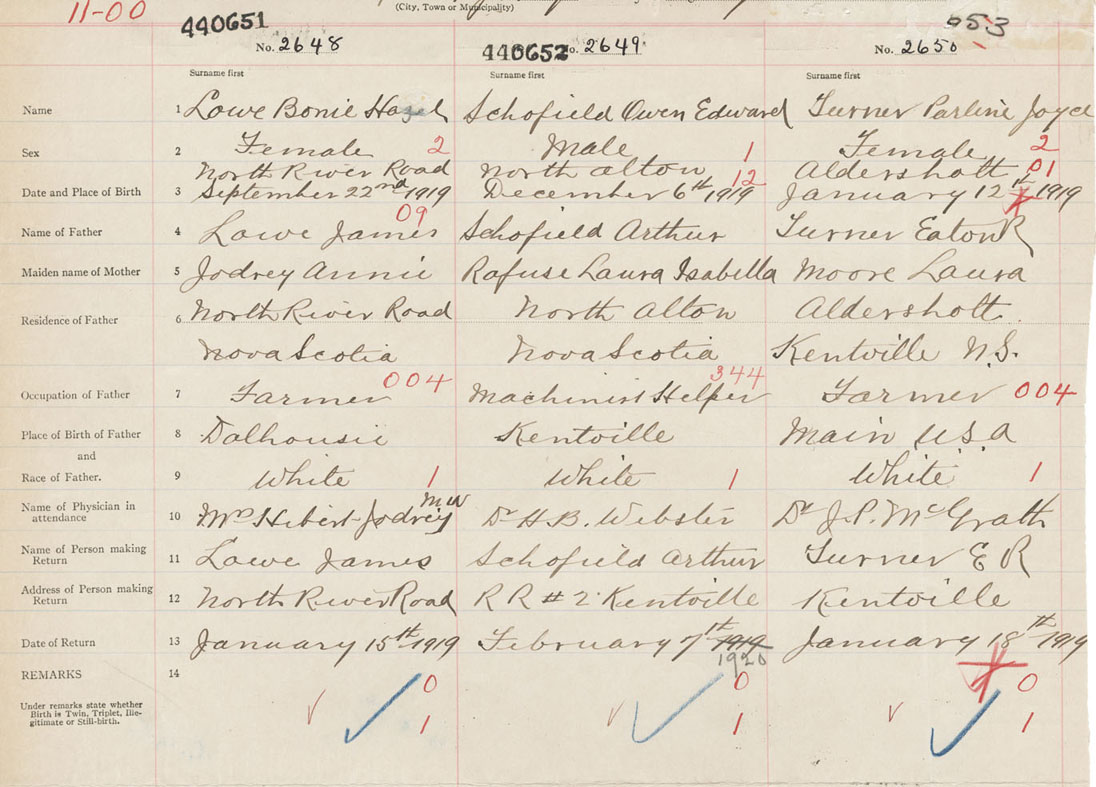 11-00
(City, Town or Municipality)
440651 No. 2648 440652 No. 2649 653 No. 2650
Surname first Surname first Surname first
Name 1 Lowe Bonie Hazel Schofield Owen Edward Turner Parline Joyce
Sex 2 Female 2 Male 1 Female 2
North River Road North Alton Aldershott 01
Date and Place of Birth 3 September 22nd 1919 December 6th 1919 12 January 12th 1919
09
Name of Father 4 Lowe James Schofield Arthur Turner Eaton R
Maiden name of Mother 5 Jodrey Annie Rafuse Laura Isabella Moore Laura
Residence of Father 6 North River Road North Alton Aldershott
Nova Scotia Nova Scotia Kentville N.S.
Occupation of Father 7 Farmer 004 Machinist Helper 344 Farmer 004
Place of Birth of Father 8 Dalhousie Kentville Main U.S.A
and
Race of Father. 9 White 1 White 1 White 1
Name of Physician in
attendance 10 Mrs Hibert Jodrey MW Dr H.B. Webster Dr J.P. McGrath
Name of Person making
Return 11 Lowe James Schofield Arthur Turner E R
Address of Person making
Return 12 North River Road R R #2 Kentville Kentville
Date of Return 13 January 15th 1919 February 7th 1919 January 18th 1919
1920
REMARKS 14 0 0 0
Under remarks state whether
Birth is Twin, Triplet, Ille-
gitimate or Still-birth. 1 1 1